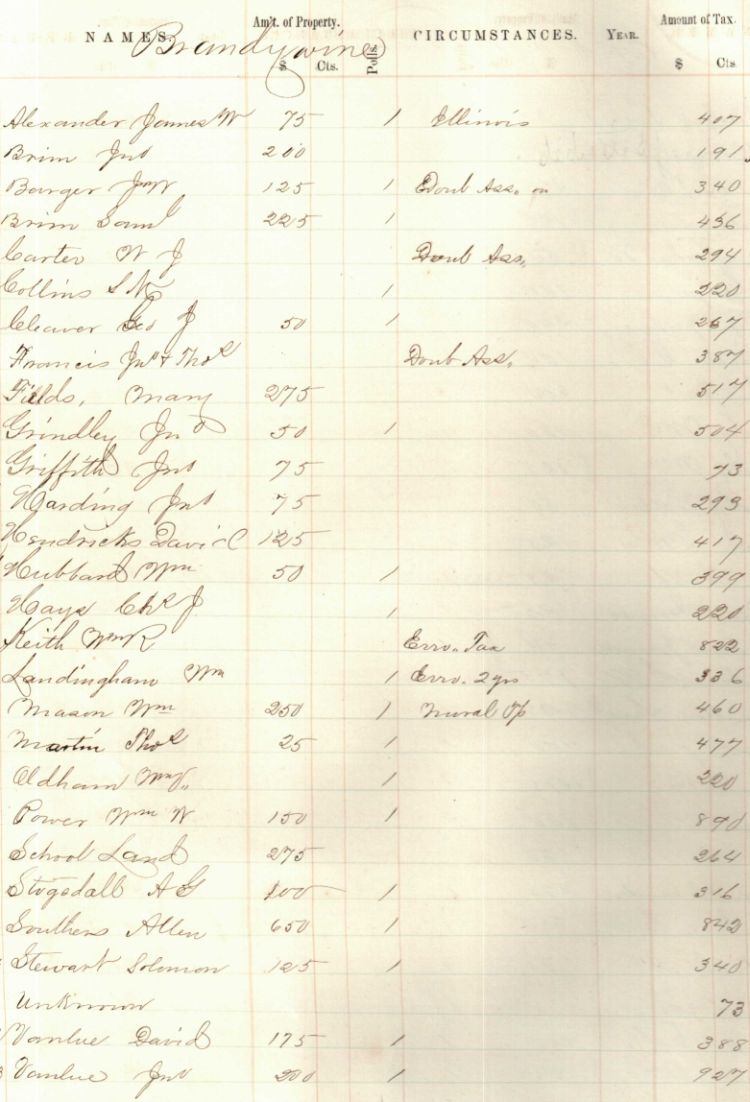 NAMES. Brandywine Am't. of Property. $ Cts. Polls. CIRCUMSTANCES. YEAR. Amount of Tax. $ Cts
Alexander James W 75 1 Illinois 407
Brim Jno 200 191
Barger Jno W 125 1 Doub Ass. on 340
Brim Saml 225 1 436
Carter W J Doub Ass. 294
Collins S N 1 220
Cleaver Geo J 50 1 267
Francis Jno & Thos Doub Ass. 387
Fields, Mary 275 517
Grindley Jno 50 1 504
Griffith Jno 75 73
Harding Jno 75 293
Hendricks David 125 417
Hubbard Wm 50 1 399
Hays Chs J 1 220
Keith Wm R Erro. Tax 822
Landingham Wm 1 Erro. 2 yrs 336
Mason Wm 250 1 Mural Tp 460
Martin Thos 25 1 477
Oldham Wm 1 220
Power Wm W 150 1 890
School Land 275 264
Stogsdall A G 100 1 316
Southers Allen 650 1 842
Stewart Solomon 125 1 340
Unknown 73
Vanlue David 175 1 388
Vanlue Jno 200 1 927